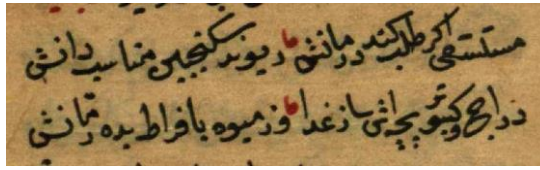 مستسقی اکر طلب کند درمانش ریوند سکنجبین مناسب دانش
دراج و کبوتر بچه اش ساز غدا وز میوه بافراط بده رمانش